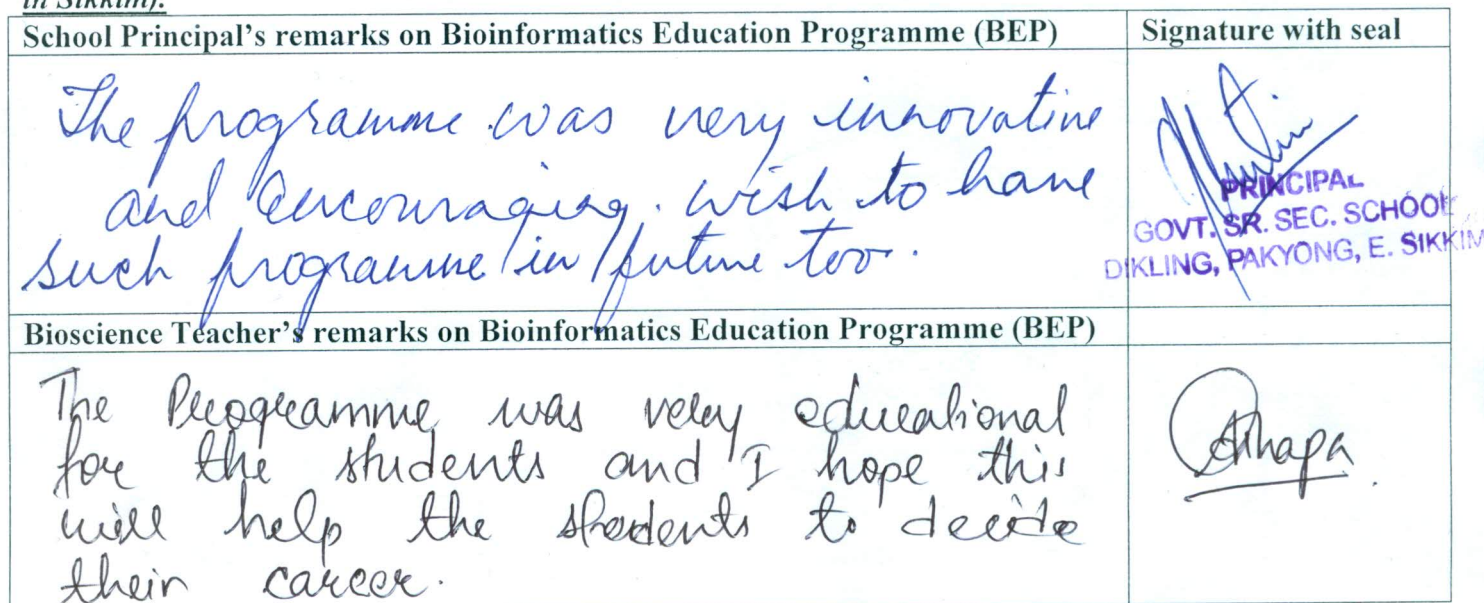 in Sikkim).
School Principal's remarks on Bioinformatics Education Programme (BEP)
Signature with seal
The programme was very innovative
and encouraging. wish to have
such programme in future too.
PRINCIPAL
GOVT. SR. SEC. SCHOOL
DIKLING, PAKYONG, E. SIKKIM
Bioscience Teacher's remarks on Bioinformatics Education Programme (BEP)
The Programme was very educational
for the students and I hope this
will help the students to decide
their career.